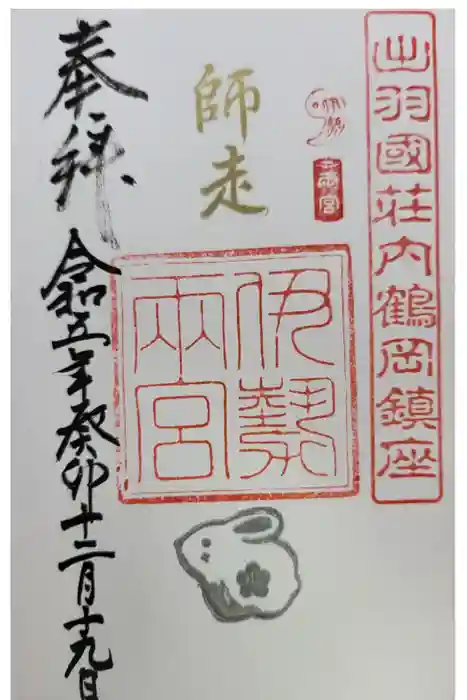 出羽國莊内鶴岡鎮座
伊勢
両宮
師走
伊勢
両宮
奉拝
令和五年癸卯十二月十九日